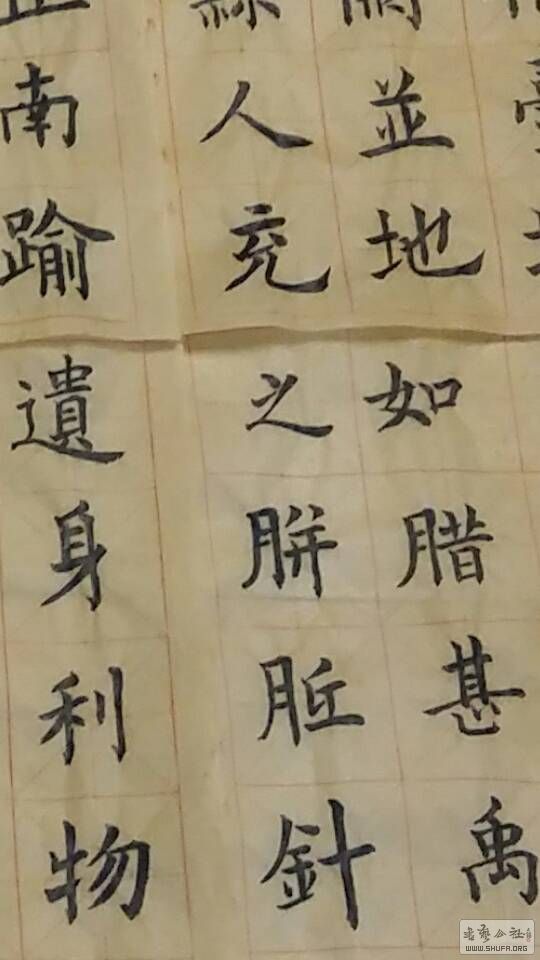 並地如腊甚禹
人充之胼胝針
南踰遺身利物
书艺公社
WWW.SHUFA.ORG